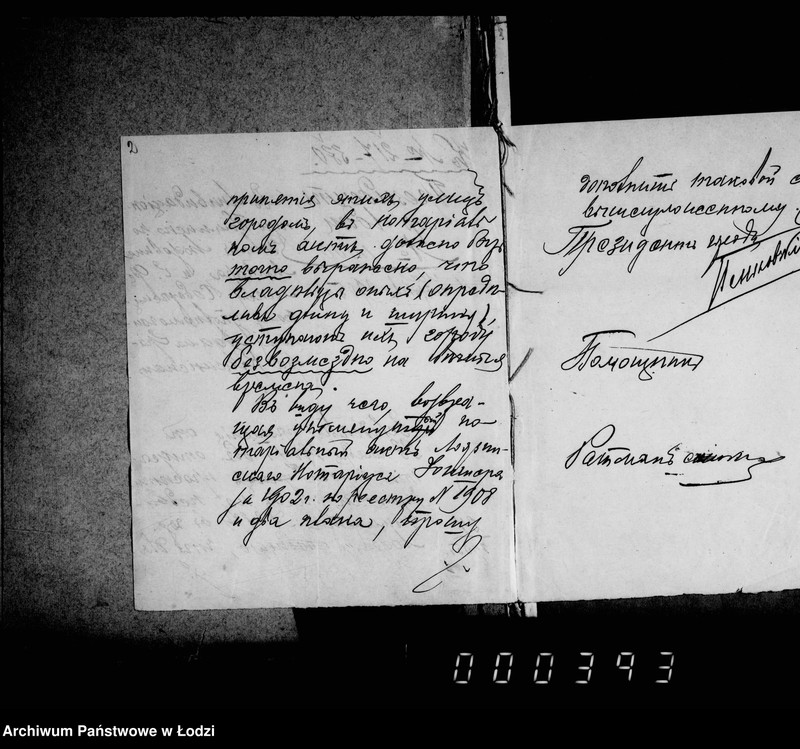 2
принятія этихъ улицъ
городомъ, въ нотаріаль
номъ актѣ должно быть
точно выражено, что
владѣльцы оныхъ (опредѣ-
ливъ длину и ширину),
уступаютъ ихъ городу
безвозмездно на вѣчныя
времена.
Въ виду чего, возвра-
щая упомянутый но-
таріальный актъ Лодзин-
скаго Нотаріуса
за 1902 г. по реестру N 1908
и два плана, прошу
дополнить таковой
вышеизложенному.
Президентъ города
Пеньковскій
Помощникъ
Ратманъ
000393
Archiwum Państwowe w Łodzi